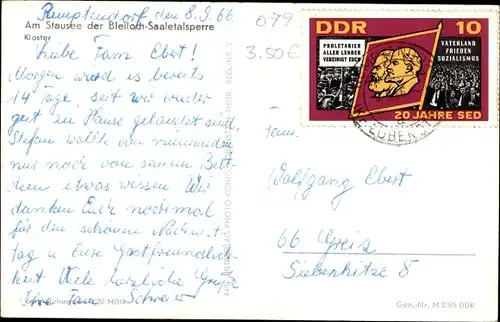 Rauptendorf den 8.9.66
Am Stausee der Bleiloch-Saaletalsperre
Kloster
Liebe Fam. Ebert!
Morgen wird es bereits
14 Tage, seit wir wieder
gut zu Hause gelandet sind,
Stefan wollte von niemanden
nur noch von seinem Bett-
chen etwas wissen. Wir
danken Euch nochmal
für den schönen Nachmit-
tag u. Eure Gastfreundlich-
keit. Viele herzliche Grüße
Ihre Fam.
079
3.50 €
DDR 10
PROLETARIER
ALLER LÄNDER
VEREINIGT EUCH
VATERLAND
FRIEDEN
SOZIALISMUS
20 JAHRE SED
Fam.
Wolfgang Ebert
66 Greiz
Siebenhitze 8
Gen.-Nr. M 2/65 DDR